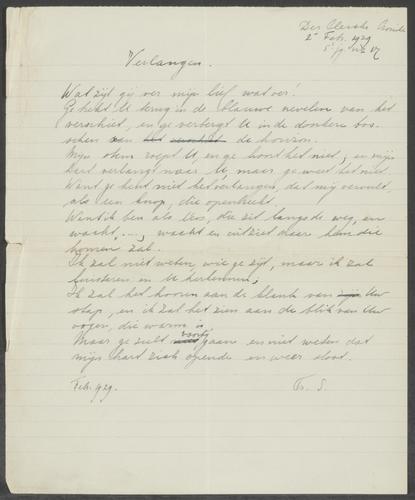 Der Clercke Cronike
2 Febr. 1929
5e jg. no 17
Verlangen.
Wat zijt gij ver mijn lief, wat ver!
Ge trekt U terug in de blauwe nevelen van het
verschiet, en ge verbergt U in de donkere bos-
schen van de horizon.
Mijn stem roept U, en ge hoort het niet, en mijn
hart verlangt naar U maar ge weet het niet.
Want ge kent niet het verlangen, dat mij vervult
als een knop, die openbreekt.
Want ik ben als één, die zit langs de weg, en
wacht, ..., wacht en uitziet naar hen die
komen zal.
Ik zal niet weten wie ge zijt, maar ik zal
luisteren en U herkennen;
Ik zal het hooren aan de klank van Uw
stap, en ik zal het zien aan de blik van Uw
oogen, die warm is.
Maar ge zult voorbij gaan en niet weten dat
mijn hart zich opende en weer sloot.
Febr. 1929.
Tr. S.